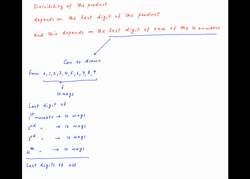 Divisibility of the product
depends on the last digit of the product
And this depends on the last digit of each of the 4 numbers
Can be drawn
From 0,1,2,3,4,5,6,7,8,9
10 ways
Last digit of
1st number → 10 ways
2nd " → 10 ways
3rd " → 10 ways
4th " → 10 ways
Last digits of all